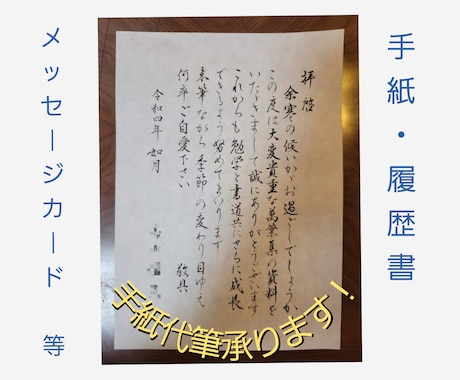 手紙・履歴書
拝啓
余寒の候いかがお過ごしでしょうか
この度は大変貴重な萬葉集の資料を
いただきまして誠にありがとうございます
これからも勉学と書道共にさらに成長
できるよう努めてまいります
末筆ながら季節の変わり目ゆえ
何卒ご自愛下さい
敬具
令和四年 如月
メッセージカード 等
手紙代筆承ります!